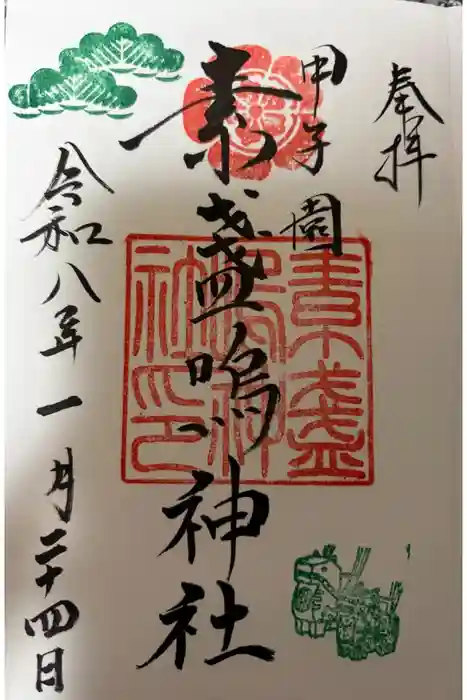 奉拝
甲子園
素盞嗚神社
令和八年一月二十四日
素盞嗚神社印